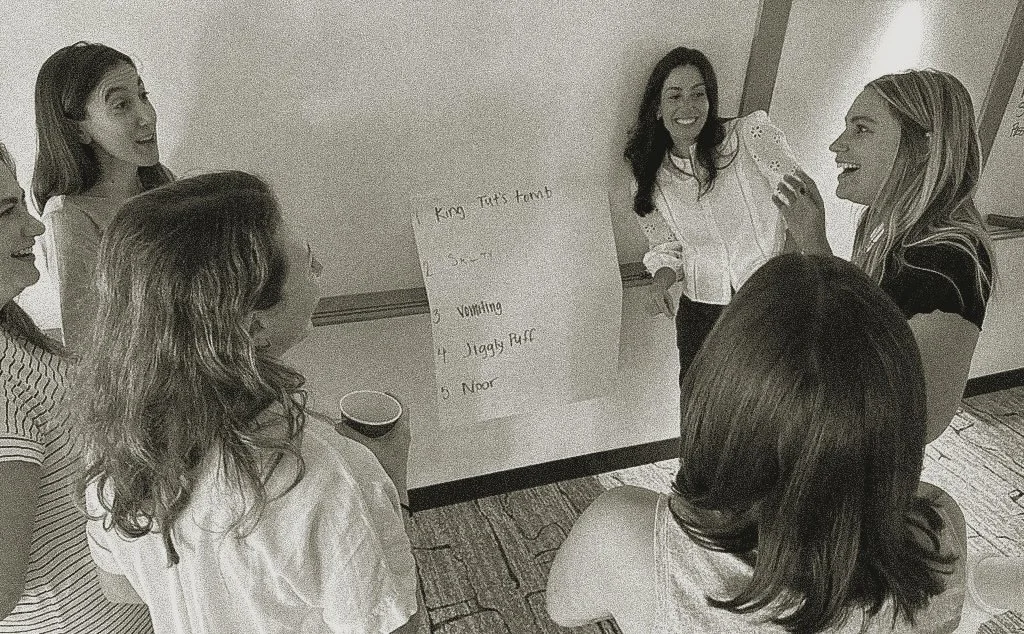 1 King Tut's tomb
2
3 Vomiting
4 Jiggly Puff
5 Noor